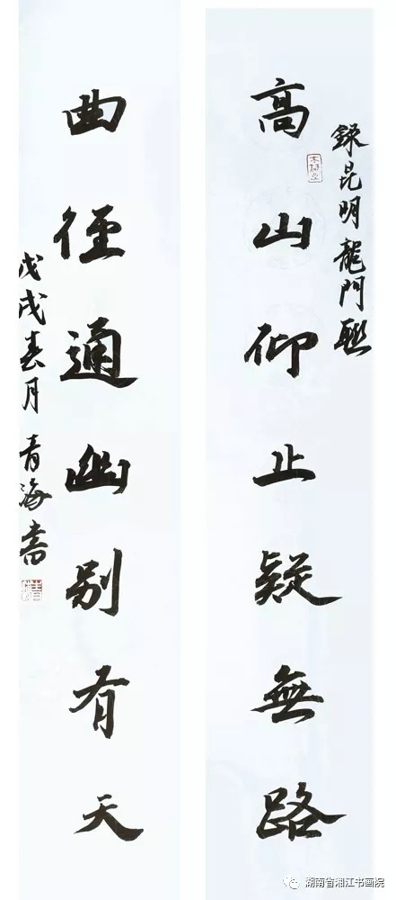 錄昆明龍門联
高山仰止疑無路
曲徑通幽别有天
戊戌春月青海書
湖南省湘江书画院